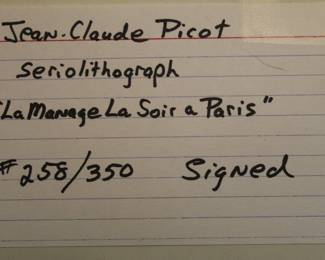 Jean-Claude Picot
Seriolithograph
"La Manage La Soir a Paris"
#258/350 Signed